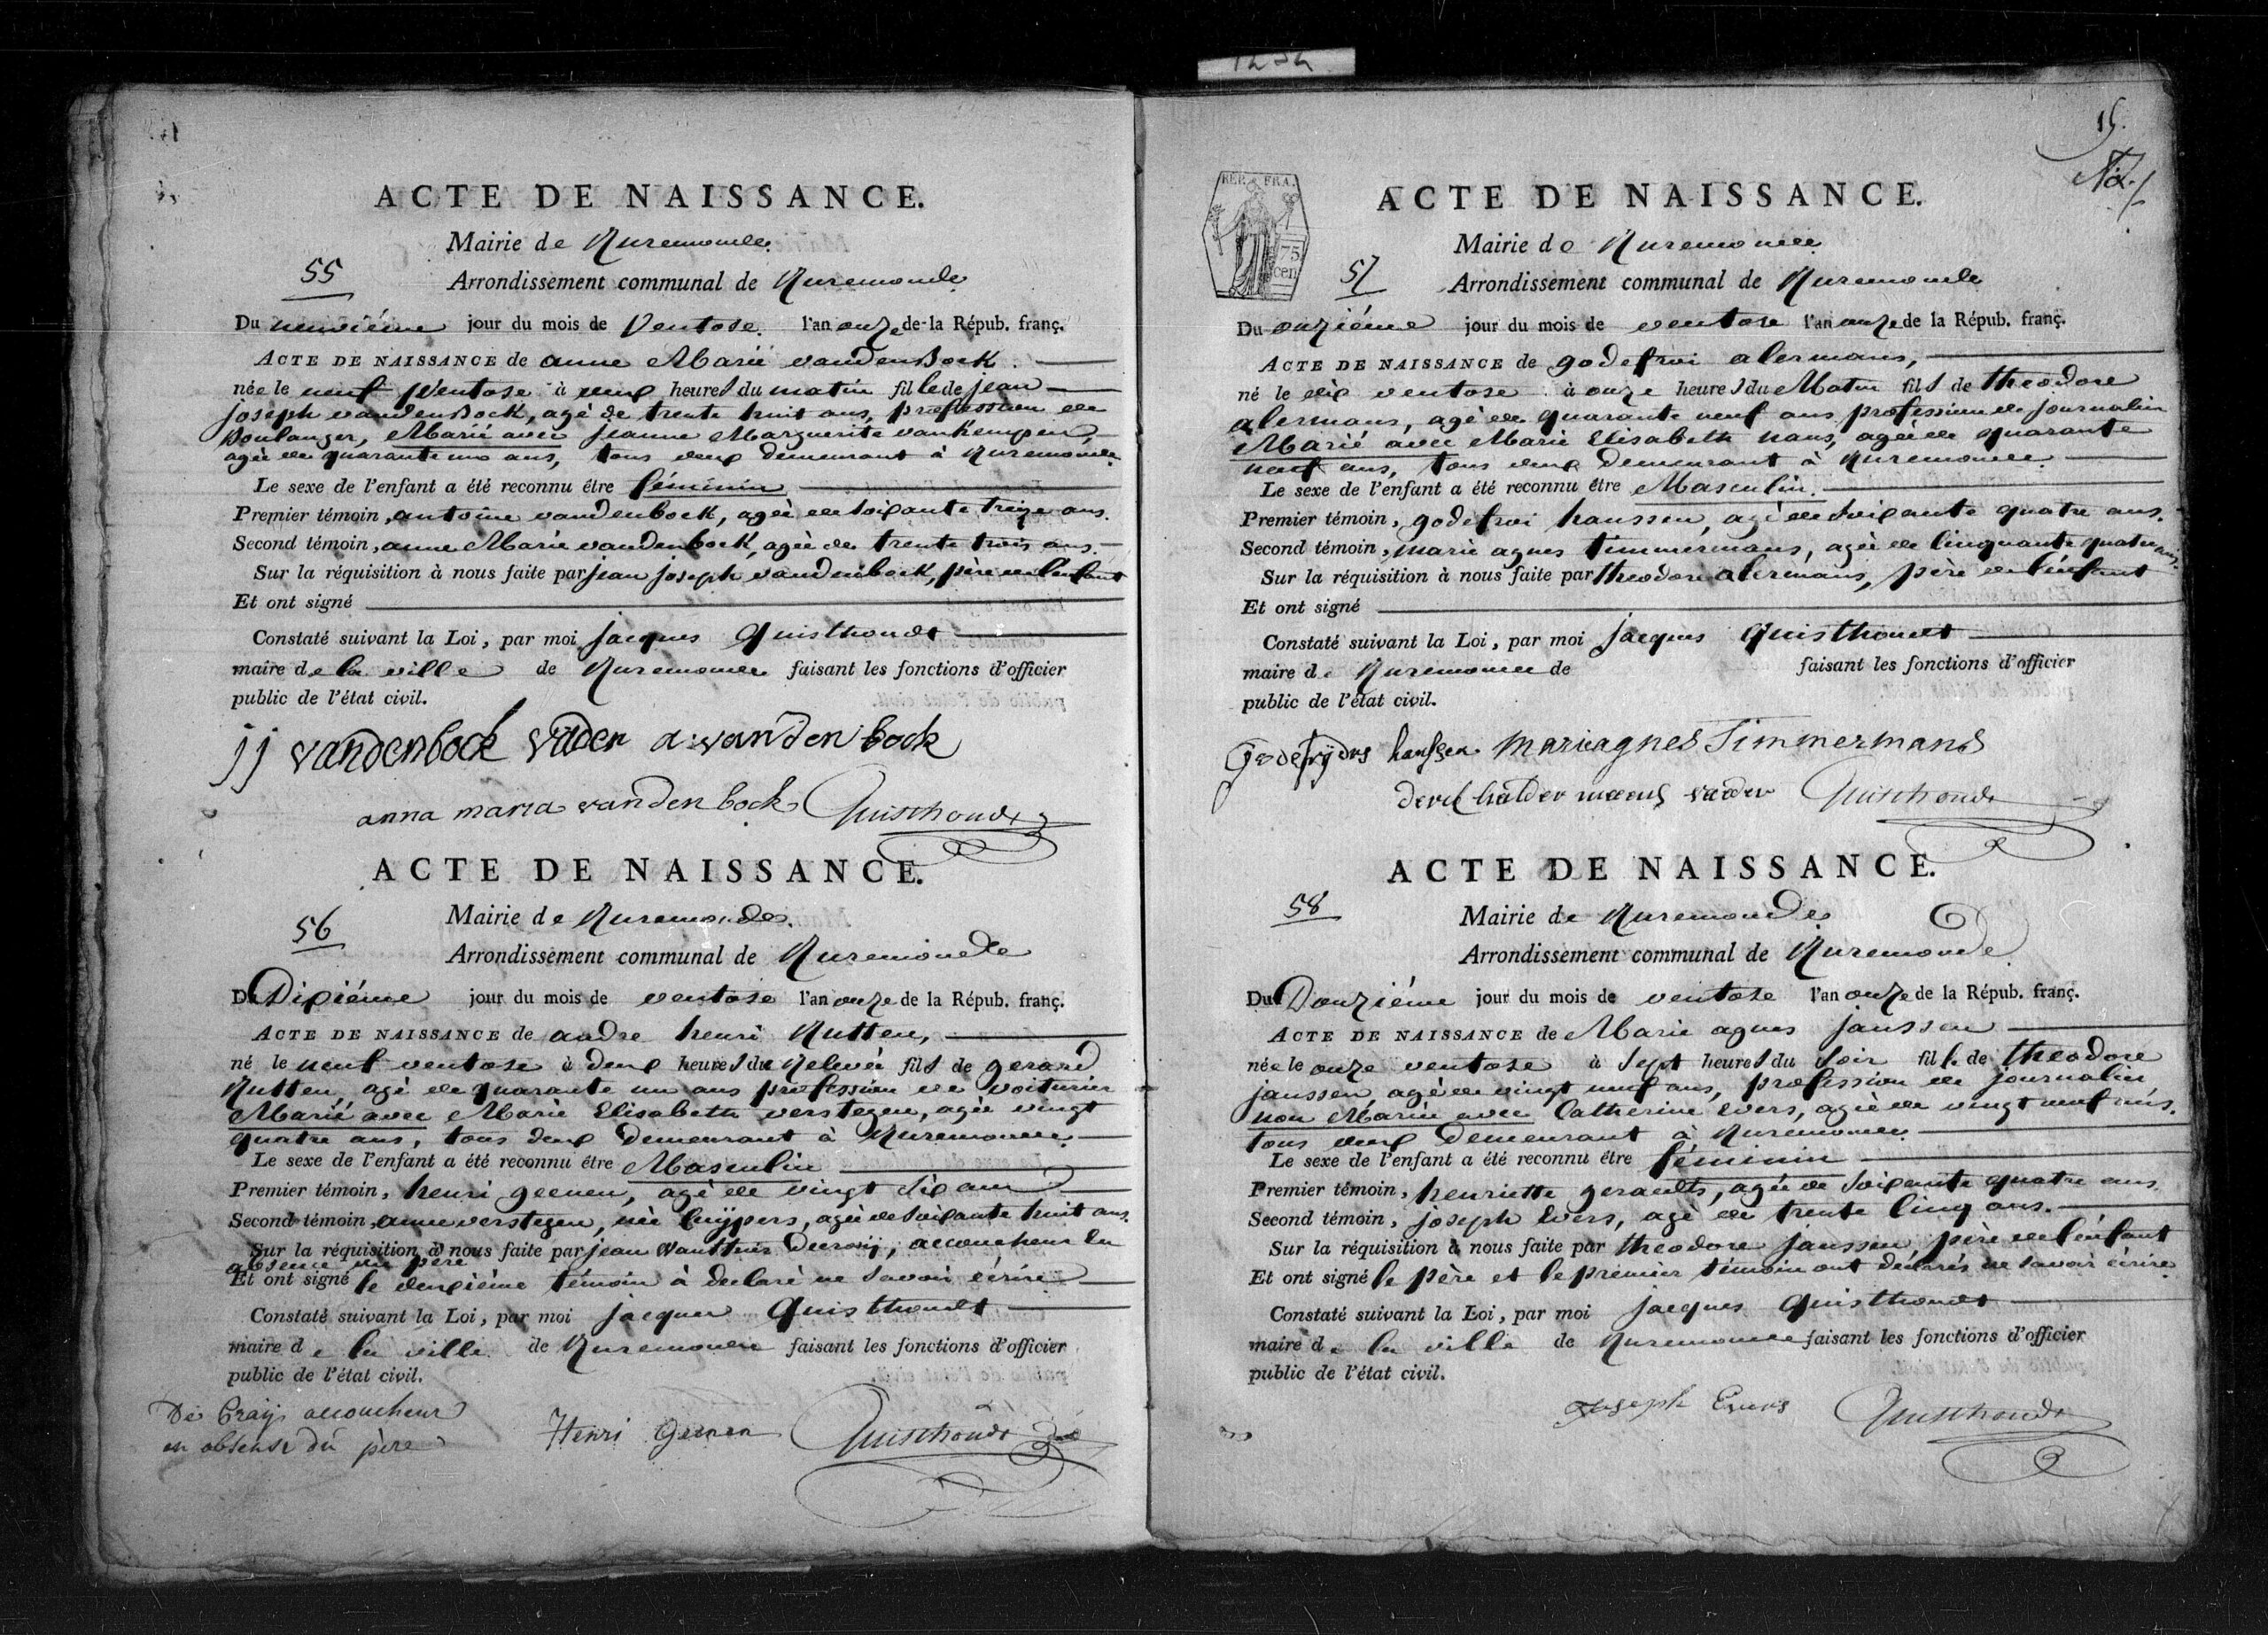 1252
ACTE DE NAISSANCE.
Mairie de Ruremonde.
55
Arrondissement communal de Ruremonde
Du neuvième jour du mois de Ventose. l'an onze de la Répub. franç.
ACTE DE NAISSANCE de anne Marie vandenBock.
née le neuf Ventose à deux heures du matin fille de jean
joseph vandenBock, agé de trente huit ans, profession de
Boulanger, Marié avec jeanne Marguerite vanKempen,
agée de quarante un ans, tous deux demeurant à Ruremonde
Le sexe de l'enfant a été reconnu être féminin
Premier témoin, antoine vandenbock, agé de soixante treize ans.
Second témoin, anne Marie vandenbock, agée de trente trois ans.
Sur la réquisition à nous faite par jean joseph vandenbock, père de l'enfant
Et ont signé
Constaté suivant la Loi, par moi jacques Quisthoudt
maire de la ville de Ruremonde faisant les fonctions d'officier
public de l'état civil.
jj vandenbock vader a vandenbock
anna maria vandenbock Quisthoudt
ACTE DE NAISSANCE.
56
Mairie de Ruremonde.
Arrondissement communal de Ruremonde
Du Dixiéme jour du mois de ventose l'an onze de la Répub. franç.
ACTE DE NAISSANCE de andre henri Rutten,
né le neuf ventose à deux heures de Relevée fils de gerard
Rutten, agé de quarante un ans profession de voiturier
Marié avec Marie Elisabeth verstegen, agée vingt
quatre ans, tous deux Demeurant à Ruremonde
Le sexe de l'enfant a été reconnu être Masculin
Premier témoin, henri geenen, agé de vingt six ans
Second témoin, anne verstegen, née Cuÿpers, agée de soixante huit ans.
Sur la réquisition à nous faite par jean Wauthier Decraij, accoucheur en
absence du père
Et ont signé le deuxième témoin à declaré ne savoir écrire
Constaté suivant la Loi, par moi jacques Quisthoudt
maire de la ville de Ruremonde faisant les fonctions d'officier
public de l'état civil.
De Craij accoucheur
en absense du père
Henri Geenen Quisthoudt
15.
REP. FRA.
75
cen
ACTE DE NAISSANCE.
Mairie de Ruremonde
57
Arrondissement communal de Ruremonde
Du onziéme jour du mois de ventose l'an onze de la Répub. franç.
ACTE DE NAISSANCE de godefroi alermans,
né le dix ventose à onze heures du Matin fils de theodore
alermans, agé de quarante neuf ans profession de journalier
Marié avec Marie Elisabeth nans, agée de quarante
neuf ans, tous deux Demeurant à Ruremonde.
Le sexe de l'enfant a été reconnu être Masculin.
Premier témoin, godefroi hanssen, agé de soixante quatre ans.
Second témoin, marie agnes timmermans, agée de Cinquante quatre ans.
Sur la réquisition à nous faite par theodore alermans, père de l'enfant
Et ont signé
Constaté suivant la Loi, par moi jacques Quisthoudt
maire de Ruremonde de faisant les fonctions d'officier
public de l'état civil.
Godefrijdus hanssen Marieagnes Timmermans
vader Quisthoudt
ACTE DE NAISSANCE.
58
Mairie de Ruremonde
Arrondissement communal de Ruremonde
Du Douziéme jour du mois de ventose l'an onze de la Répub. franç.
ACTE DE NAISSANCE de Marie agnes janssen
née le onze ventose à sept heures du soir fille de theodore
janssen, agé de vingt neuf ans, profession de journalier,
non Marié avec Catherine Evers, agée de vingt neuf ans.
tous deux Demeurant à Ruremonde
Le sexe de l'enfant a été reconnu être féminin
Premier témoin, henriette geraedts, agée de soixante quatre ans.
Second témoin, joseph Evers, agé de trente Cinq ans.
Sur la réquisition à nous faite par theodore janssen père de l'enfant
Et ont signé le père et le premier témoin ont déclarés ne savoir écrire.
Constaté suivant la Loi, par moi jacques Quisthoudt
maire de la ville de Ruremonde faisant les fonctions d'officier
public de l'état civil.
Joseph Evers Quisthoudt